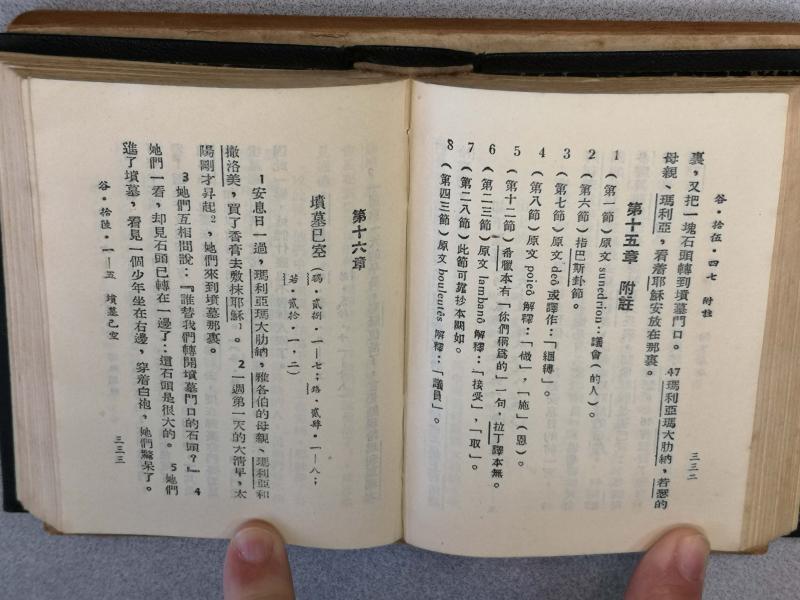 谷・拾伍・四七　附註
三三二
裏，又把一塊石頭轉到墳墓門口。　47 瑪利亞瑪大肋納，若瑟的
母親、瑪利亞，看着耶穌安放在那裏。
第十五章　附註
1（第一節）原文 sunedrion：議會（的人）。
2（第六節）指巴斯卦節。
3（第七節）原文 deō 或譯作：「綑縛」。
4（第八節）原文 poieō 解釋：「做」，「施」（恩）。
5（第十二節）希臘本有「你們稱爲的」一句，拉丁譯本無。
6（第二三節）原文 lambanō 解釋：「接受」，「取」。
7（第二八節）此節可靠抄本闕如。
8（第四三節）原文 bouleutēs 解釋：「議員」。
第十六章
墳墓已空（瑪・貳捌・一—七；路・貳肆・一—八；
若・貳拾・一，二）
1 安息日一過，瑪利亞瑪大肋納，雅各伯的母親、瑪利亞和
撒洛美，買了香膏去敷抹耶穌1。　2 一週第一天的大清早，太
陽剛才昇起2，她們來到墳墓那裏。
3 她們互相問說：『誰替我們轉開墳墓門口的石頭？』　4
她們一看，却見石頭已轉在一邊了：這石頭是很大的。　5 她們
進了墳墓，看見一個少年坐在右邊，穿着白袍，她們驚呆了。
谷・拾陸・一—五　墳墓已空
三三三